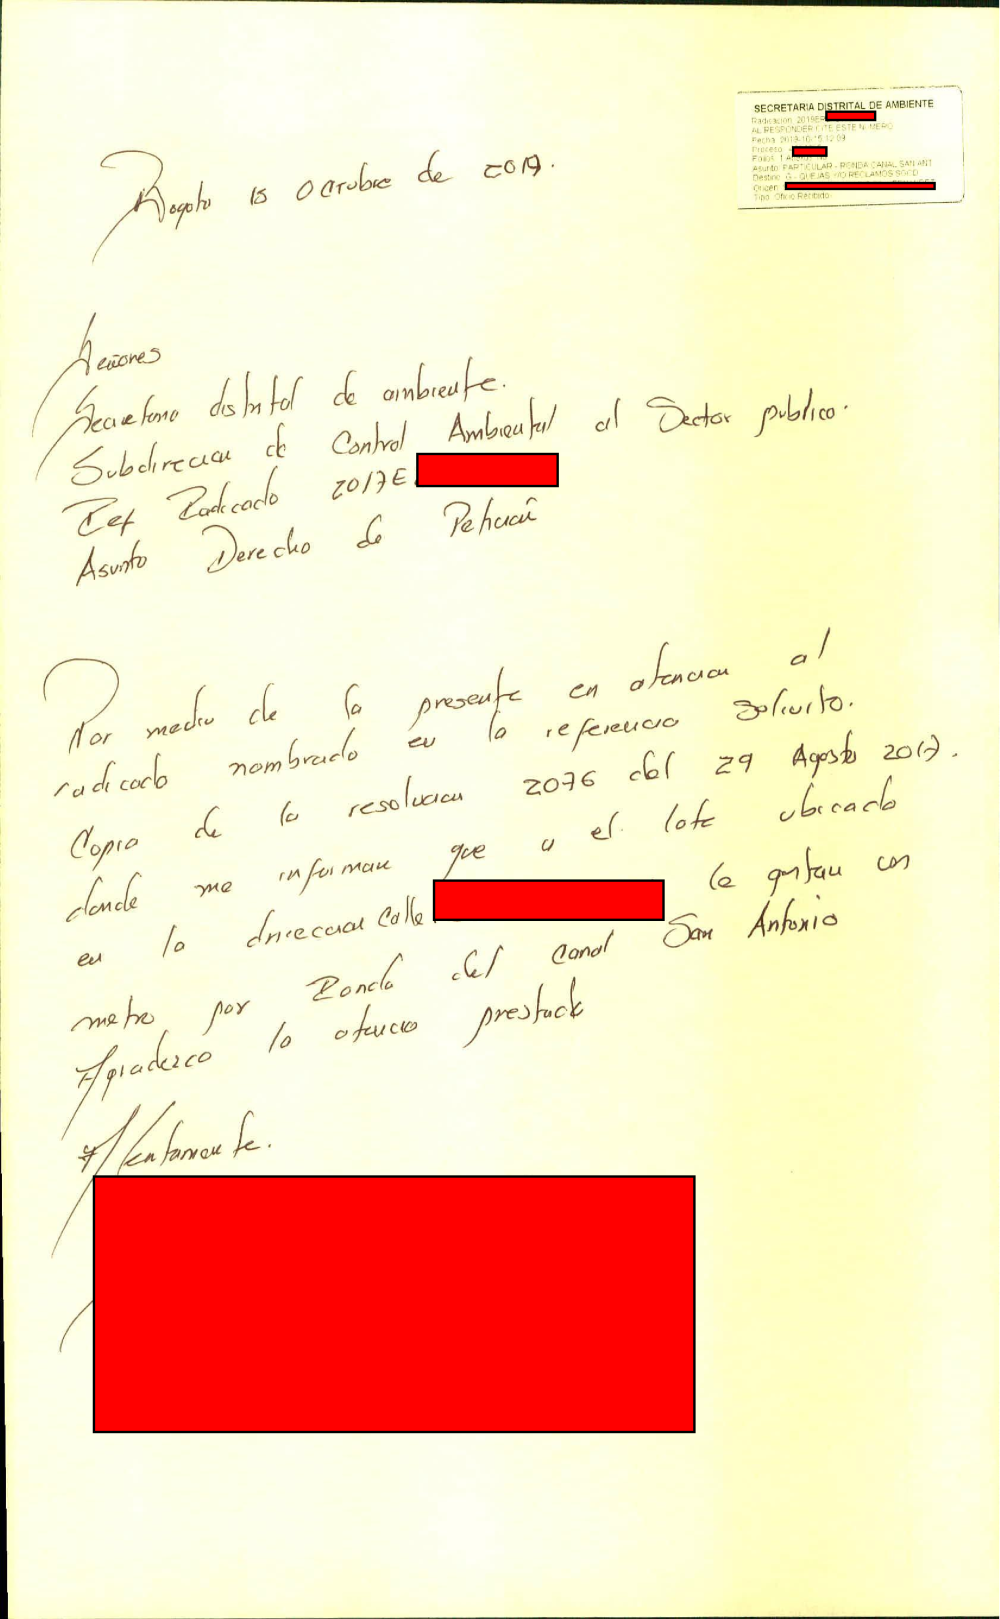 SECRETARIA DISTRITAL DE AMBIENTE
Radicación: 2019ER
AL RESPONDER CITE ESTE NUMERO
Fecha: 2019-10-15 12:09
Proceso:
Folios: 1
Asunto: PARTICULAR - RONDA CANAL SAN ANT
Destino: G - QUEJAS Y/O RECLAMOS SGCD
Origen:
Tipo: Oficio Recibido
Bogota 15 Octubre de 2019.
Señores
Secretaria distrital de ambiente.
Subdireccion de Control Ambiental al Sector publico.
Ref Radicado 2017E
Asunto Derecho de Peticion
Por medio de la presente en atencion al
radicado nombrado en la referencia solicito.
Copia de la resolucion 2076 del 29 Agosto 2017.
donde me informan que a el lote ubicado
en la direccion Calle le quitan un
metro por Ronda del Canal San Antonio
Agradezco la atencio prestada
Atentamente.